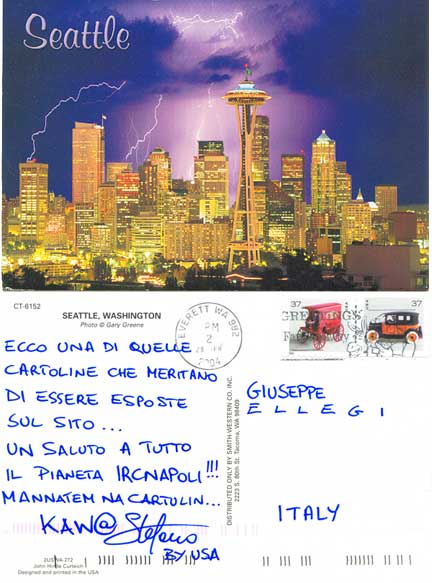 Seattle
CT-6152
SEATTLE, WASHINGTON
Photo © Gary Greene
EVERETT WA 982
PM
2
2004
37
37
GREETINGS
ECCO UNA DI QUELLE
CARTOLINE CHE MERITANO
DI ESSERE ESPOSTE
SUL SITO...
UN SALUTO A TUTTO
IL PIANETA IRCNAPOLI!!!
MANNATEM NA CARTULIN...
KAW@ Stefano
BY USA
DISTRIBUTED ONLY BY SMITH-WESTERN CO. INC.
2223 S. 80th St. Tacoma, WA 98409
GIUSEPPE
ELLEGI
ITALY
2USWA-272
John Hinde Curteich
Designed and printed in the USA